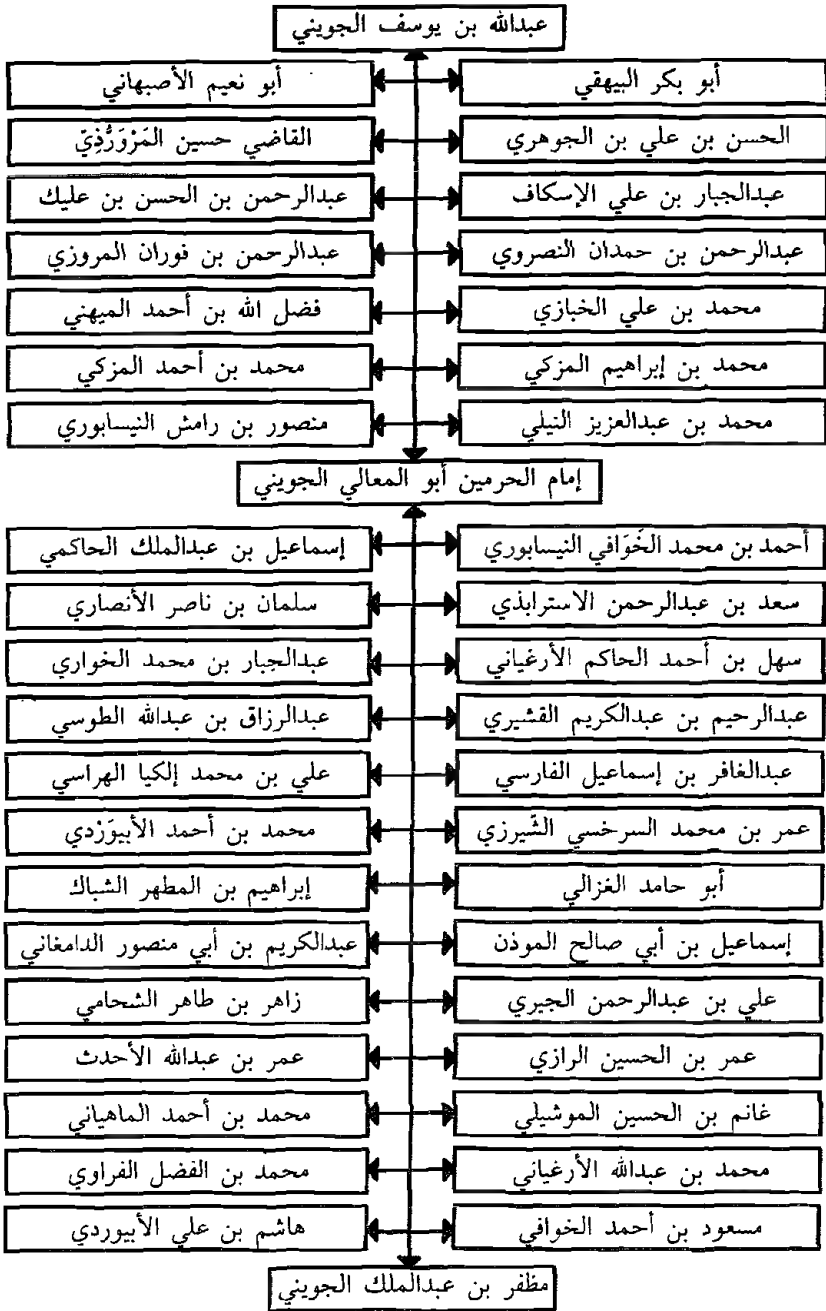 عبدالله بن يوسف الجويني
أبو بكر البيهقي
أبو نعيم الأصبهاني
الحسن بن علي بن الجوهري
القاضي حسين المَرْوَرُّذِيّ
عبدالجبار بن علي الإسكاف
عبدالرحمن بن الحسن بن عليك
عبدالرحمن بن حمدان النصروي
عبدالرحمن بن فوران المروزي
محمد بن علي الخبازي
فضل الله بن أحمد الميهني
محمد بن إبراهيم المزكي
محمد بن أحمد المزكي
محمد بن عبدالعزيز النيلي
منصور بن رامش النيسابوري
إمام الحرمين أبو المعالي الجويني
أحمد بن محمد الخَوَافي النيسابوري
إسماعيل بن عبدالملك الحاكمي
سعد بن عبدالرحمن الاسترابذي
سلمان بن ناصر الأنصاري
سهل بن أحمد الحاكم الأرغياني
عبدالجبار بن محمد الخواري
عبدالرحيم بن عبدالكريم القشيري
عبدالرزاق بن عبدالله الطوسي
عبدالغافر بن إسماعيل الفارسي
علي بن محمد إلكيا الهراسي
عمر بن محمد السرخسي الشِّيرزي
محمد بن أحمد الأبيوَرْدي
أبو حامد الغزالي
إبراهيم بن المطهر الشباك
إسماعيل بن أبي صالح الموذن
عبدالكريم بن أبي منصور الدامغاني
علي بن عبدالرحمن الجيري
زاهر بن طاهر الشحامي
عمر بن الحسين الرازي
عمر بن عبدالله الأحدث
غانم بن الحسين الموشيلي
محمد بن أحمد الماهياني
محمد بن عبدالله الأرغياني
محمد بن الفضل الفراوي
مسعود بن أحمد الخوافي
هاشم بن علي الأبيوردي
مظفر بن عبدالملك الجويني